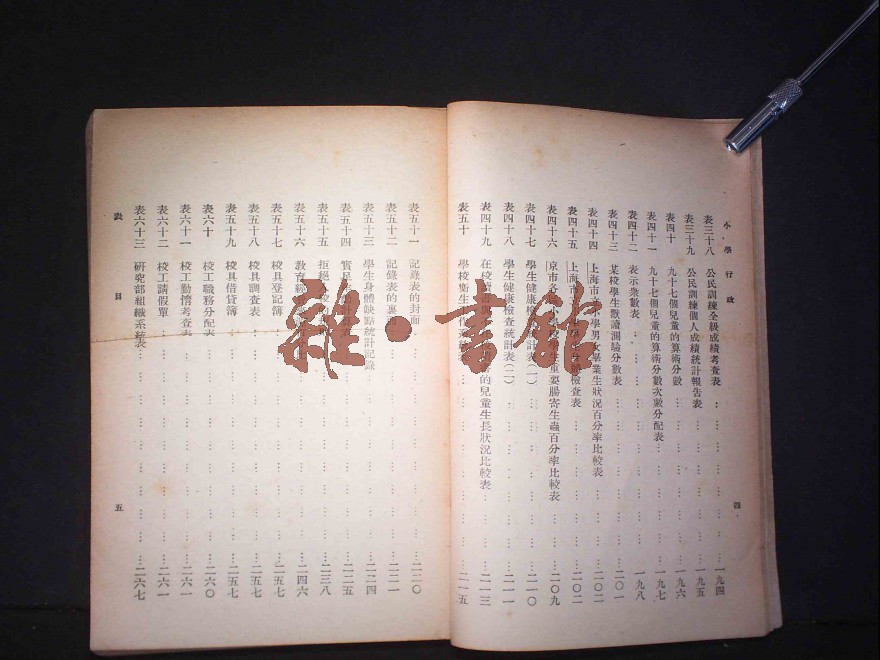 小學行政
表三十八 公民訓練全級成績考查表 一九四
表三十九 公民訓練個人成績統計報告表 一九五
表四十 九十七個兒童的算術分數 一九六
表四十一 九十七個兒童的算術分數次數分配表 一九七
表四十二 表示衆數表 一九八
表四十三 某校學生默讀測驗分數表 二〇一
表四十四 上海市 小學男女畢業生狀況百分率比較表 二〇二
表四十五 上海市 檢查表 二〇二
表四十六 京市各 生重要腸寄生蟲百分率比較表 二〇九
表四十七 學生健康檢 (一) 二一〇
表四十八 學生健康檢查統計表(二) 二一一
表四十九 在校 的兒童生長狀況比較表 二一三
表五十 學校衛生 表 二一五
四
表五十一 記錄表的封面 二二〇
表五十二 記錄表的裏 二二一
表五十三 學生身體缺點統計記錄 二二四
表五十四 實足 二二五
表五十五 拒絕 校 二三八
表五十六 教育統 二四六
表五十七 校具登記簿 二五七
表五十八 校具調查表 二五七
表五十九 校具借貸簿 二五七
表六十 校工職務分配表 二六〇
表六十一 校工勤惰考查表 二六一
表六十二 校工請假單 二六一
表六十三 研究部組織系統表 二六七
表目
五
雜·書館